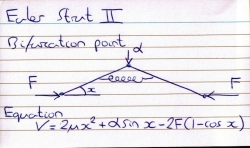 Euler Strut II
Bifurcation point
α
F x F
Equation
V=2μx²+αsin x-2F(1-cos x)